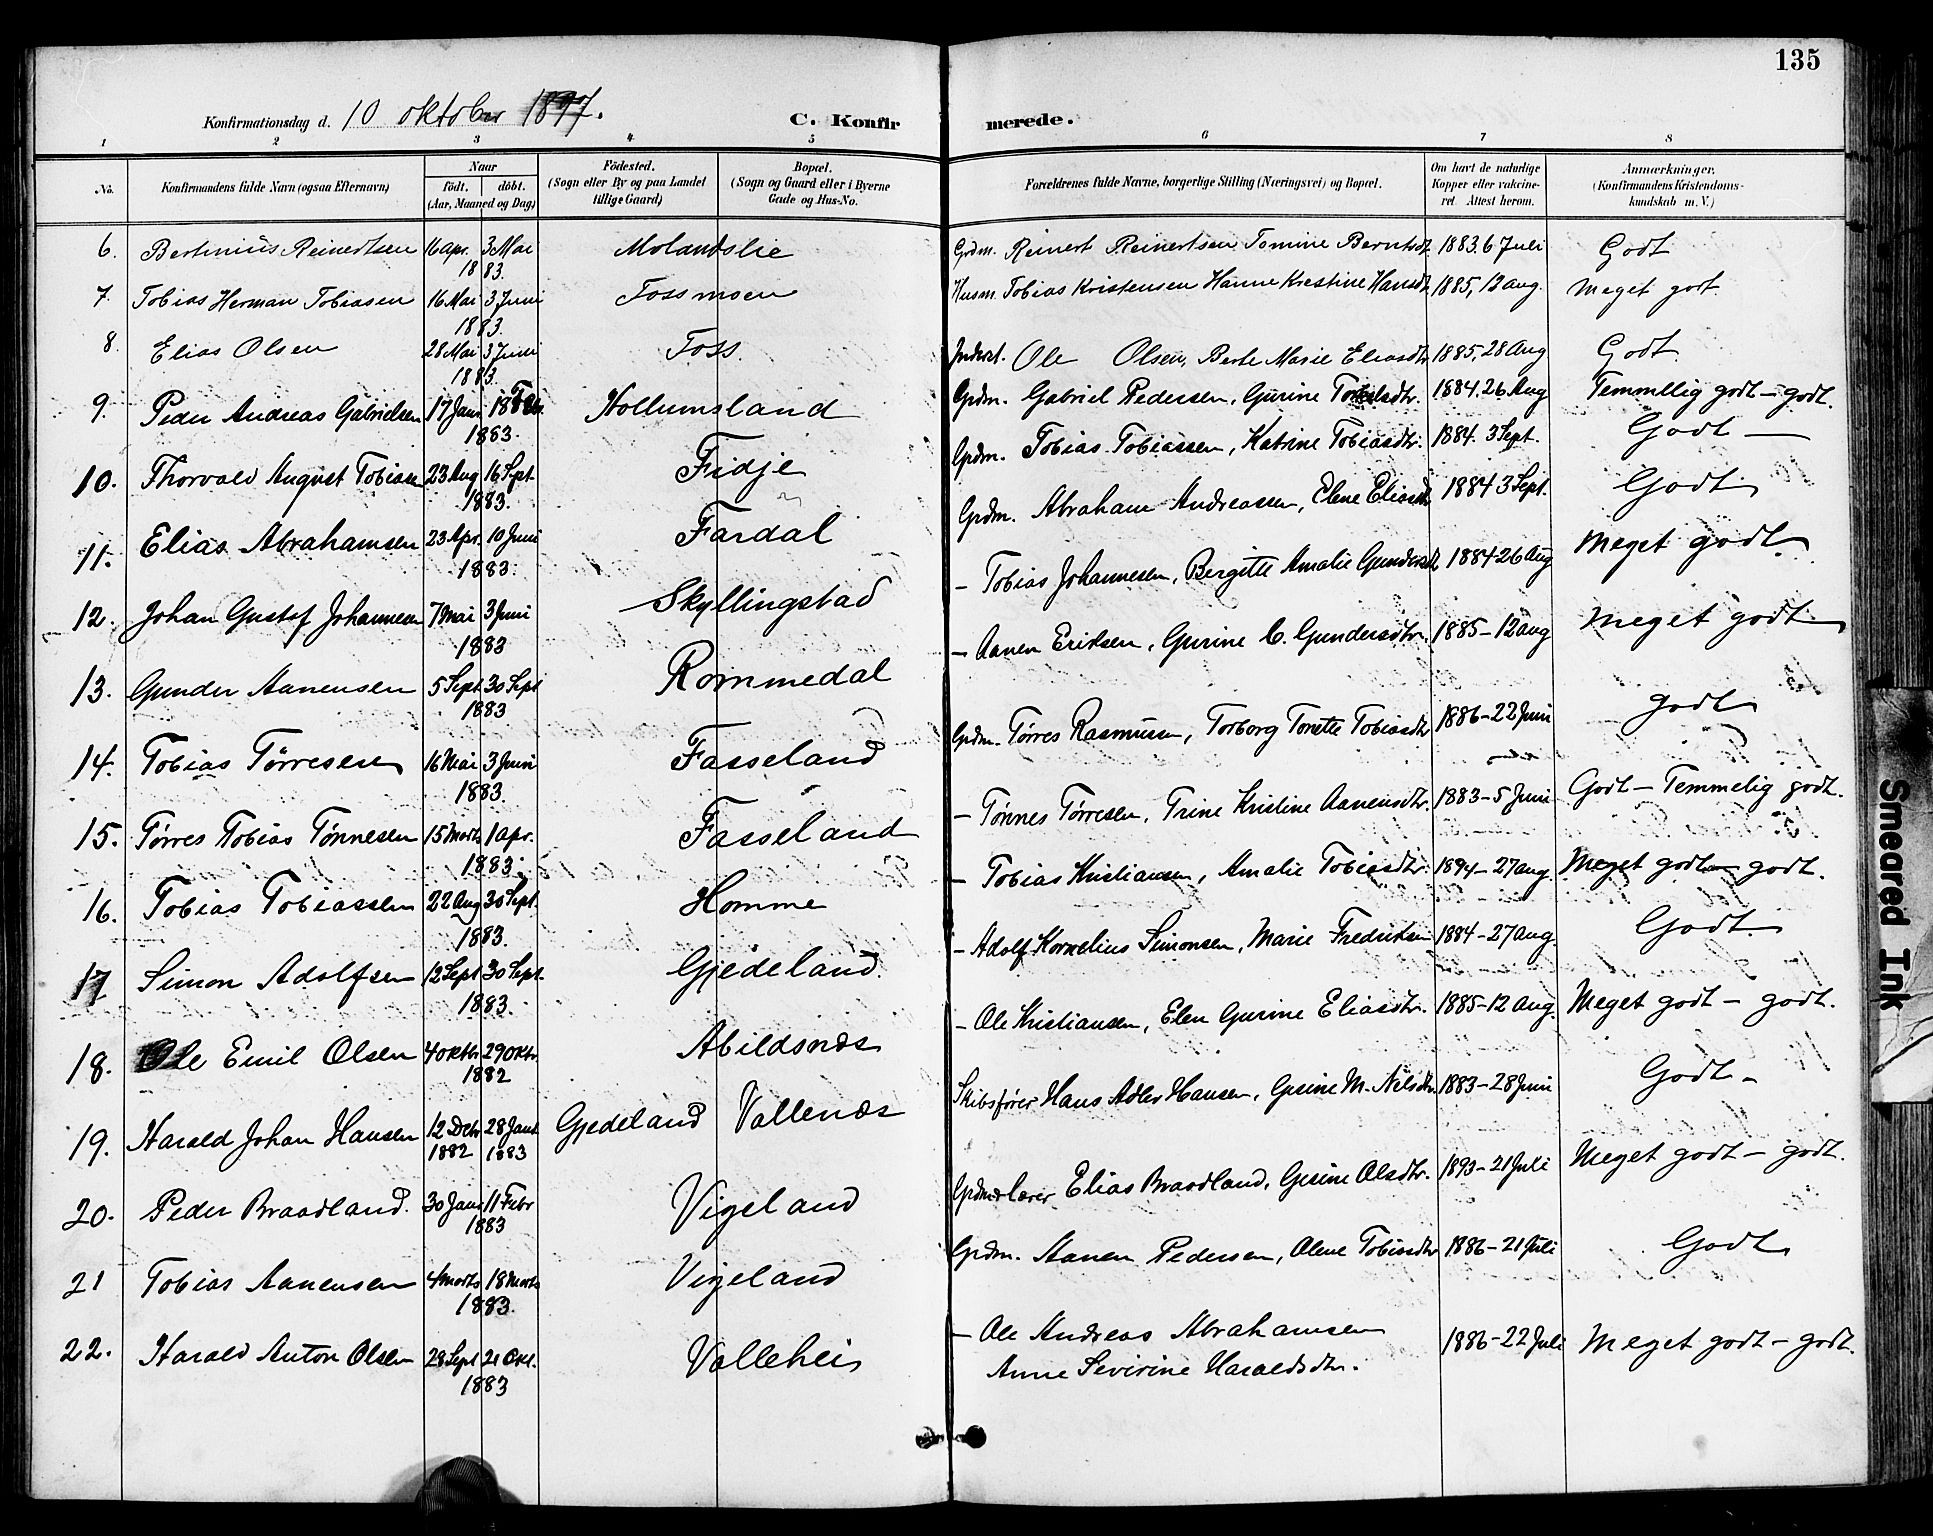 135
Konfirmationsdag d. 10 oktober 1897. C. Konfirmerede.
1 2 3 4 5 6 7 8
No. Konfirmandens fulde Navn (ogsaa Efternavn) Naar født. døbt. (Aar, Maaned og Dag) Fødested. (Sogn eller By og paa Landet tillige Gaard) Bopæl. (Sogn og Gaard eller i Byerne Gade og Hus-No. Forældrenes fulde Navne, borgerlige Stilling (Næringsvei) og Bopæl. Om havt de naturlige Kopper eller vakcineret. Attest herom. Anmærkninger. (Konfirmandens Kristendomskundskab m. V.)
6. Bertinius Reinertsen 16 apr. 3 Mai 1883. Molandslie Grdm. Reinert Reinertsen Tomine Berntsdt. 1883. 6 Juli Godt
7. Tobias Herman Tobiasen 16 Mai 3 Juni 1883. Fossmoen Husm. Tobias Kristensen Hanne Krestine Hansdt. 1885, 12 aug. Meget godt.
8. Elias Olsen 28 Mai 3 Juni 1883. Foss. Inderst. Ole Olsen, Berte Marie Eliasdtr. 1885, 28 Aug Godt
9. Peder Andreas Gabrielsen 17 Janr. 18 Febr. 1883. Hollumsland Grdm. Gabriel Pedersen, Gurine 1884. 26 Aug Temmelig godt - godt.
10. Thorvald August Tobiasen 23 Aug 16 Sept. 1883. Fidje Grdm. Tobias Tobiassen, Katrine Tobiasdtr. 1884. 3 Sept. Godt -
11. Elias Abrahamsen 23 Apr. 10 Juni 1883. Fardal Grdm. Abraham Andreassen, Elene Eliasdtr 1884 3 Sept. Godt
12. Johan Gustaf Johannesen 7 Mai 3 Juni 1883 Skyllingstad - Tobias Johannesen, Bergitte Amalie Gundersdt. 1884-26 Aug Meget godt.
13. Gunder Aanensen 5 Sept. 30 Sept 1883 Rommedal - Aanen Eriksen, Gurine C. Gundersdtr. 1885 - 12 aug Meget godt.
14. Tobias Tørresen 16 Mai 3 Juni 1883. Fasseland Grdm. Tørres Rasmussen, Torborg Tonette Tobiasdtr 1886 - 22 Juni godt
15. Tørres Tobias Tønnesen 15 Marts 1 apr. 1883. Fasseland - Tønnes Tørresen, Trine Kristine Aanensdtr. 1883 - 5 Juni Godt - Temmelig godt.
16. Tobias Tobiassen 22 Aug 30 Sept. 1883. Homme - Tobias Kristiansen, Amalie Tobiasdtr. 1894 - 27 aug. Meget godt - godt.
17 Simon Adolfsen 12 Sept 30 Sept. 1883. Gjedeland. - Adolf Kornelius Simonsen, Marie Fredriksen 1884 - 27 aug. Godt.
18. Ole Emil Olsen 4 oktbr 29 oktr. 1882 Abildsnæs - Ole Kristiansen, Elen Gurine Eliasdtr. 1885-12 aug. Meget godt - godt.
19. Harald Johan Hansen 12 Debr 1882 28 Janr 1883 Gjedeland Vollenæs Skibsfører Hans Adler Hansen, Gesine M. Nilsdtr. 1883 - 28 Juni Godt -
20. Peder Braadland. 30 Janr 11 Febr 1883 Vigeland Grdm. lærer Elias Braadland, Gesine Olsdtr. 1893 - 21 Juli Meget godt - godt.
21 Tobias Aanensen 4 marts 18 marts 1883. Vigeland Grdm. Aanen Pedersen, Olene Tobiasdtr 1886 - 21 Juli Godt
22. Harald Anton Olsen 28 Sept 21 Okt. 1883 Vollehei - Ole Andreas Abrahamsen
Anne Sevirine Haraldsdtr. 1886 - 22 Juli Meget godt - godt.
Smeared Ink